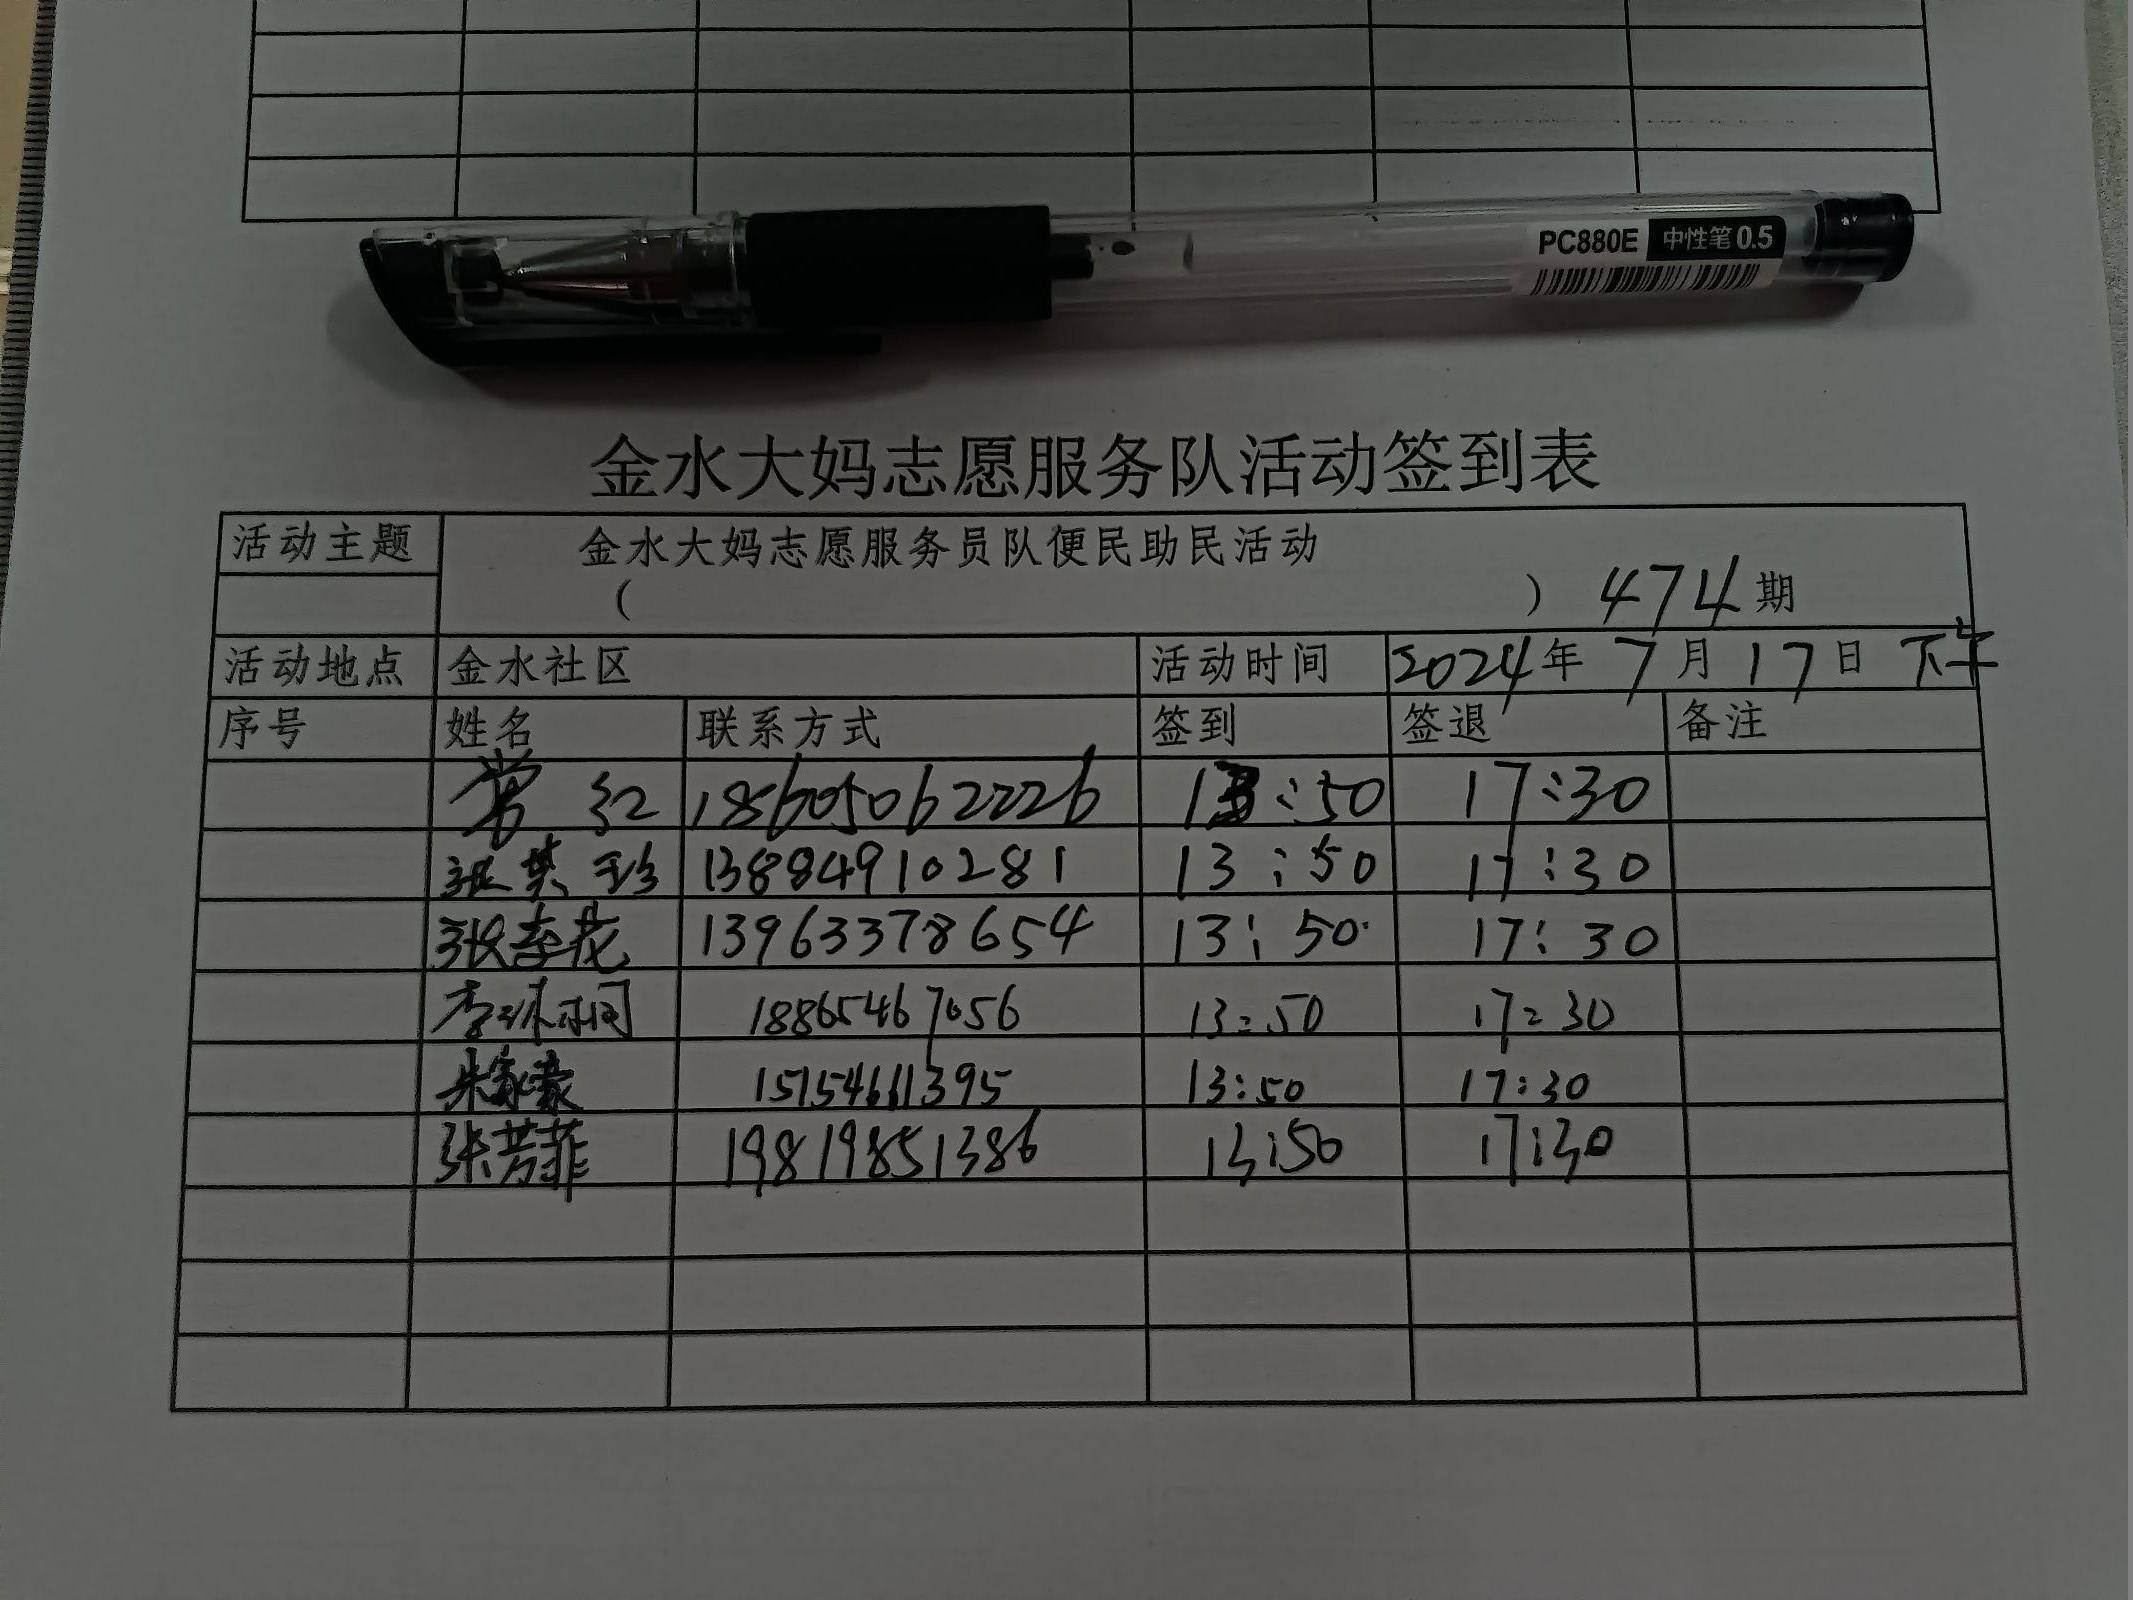 PC880E 中性笔0.5
金水大妈志愿服务队活动签到表
活动主题 金水大妈志愿服务员队便民助民活动
( ) 474期
活动地点 金水社区 活动时间 2024年7月17日下午
序号 姓名 联系方式 签到 签退 备注
常红 18605062226 13:50 17:30
13884910281 13:50 17:30
张季花 13963378654 13:50 17:30
18865467056 13:50 17:30
朱家豪 15154661395 13:50 17:30
张芳菲 19819851386 13:50 17:30